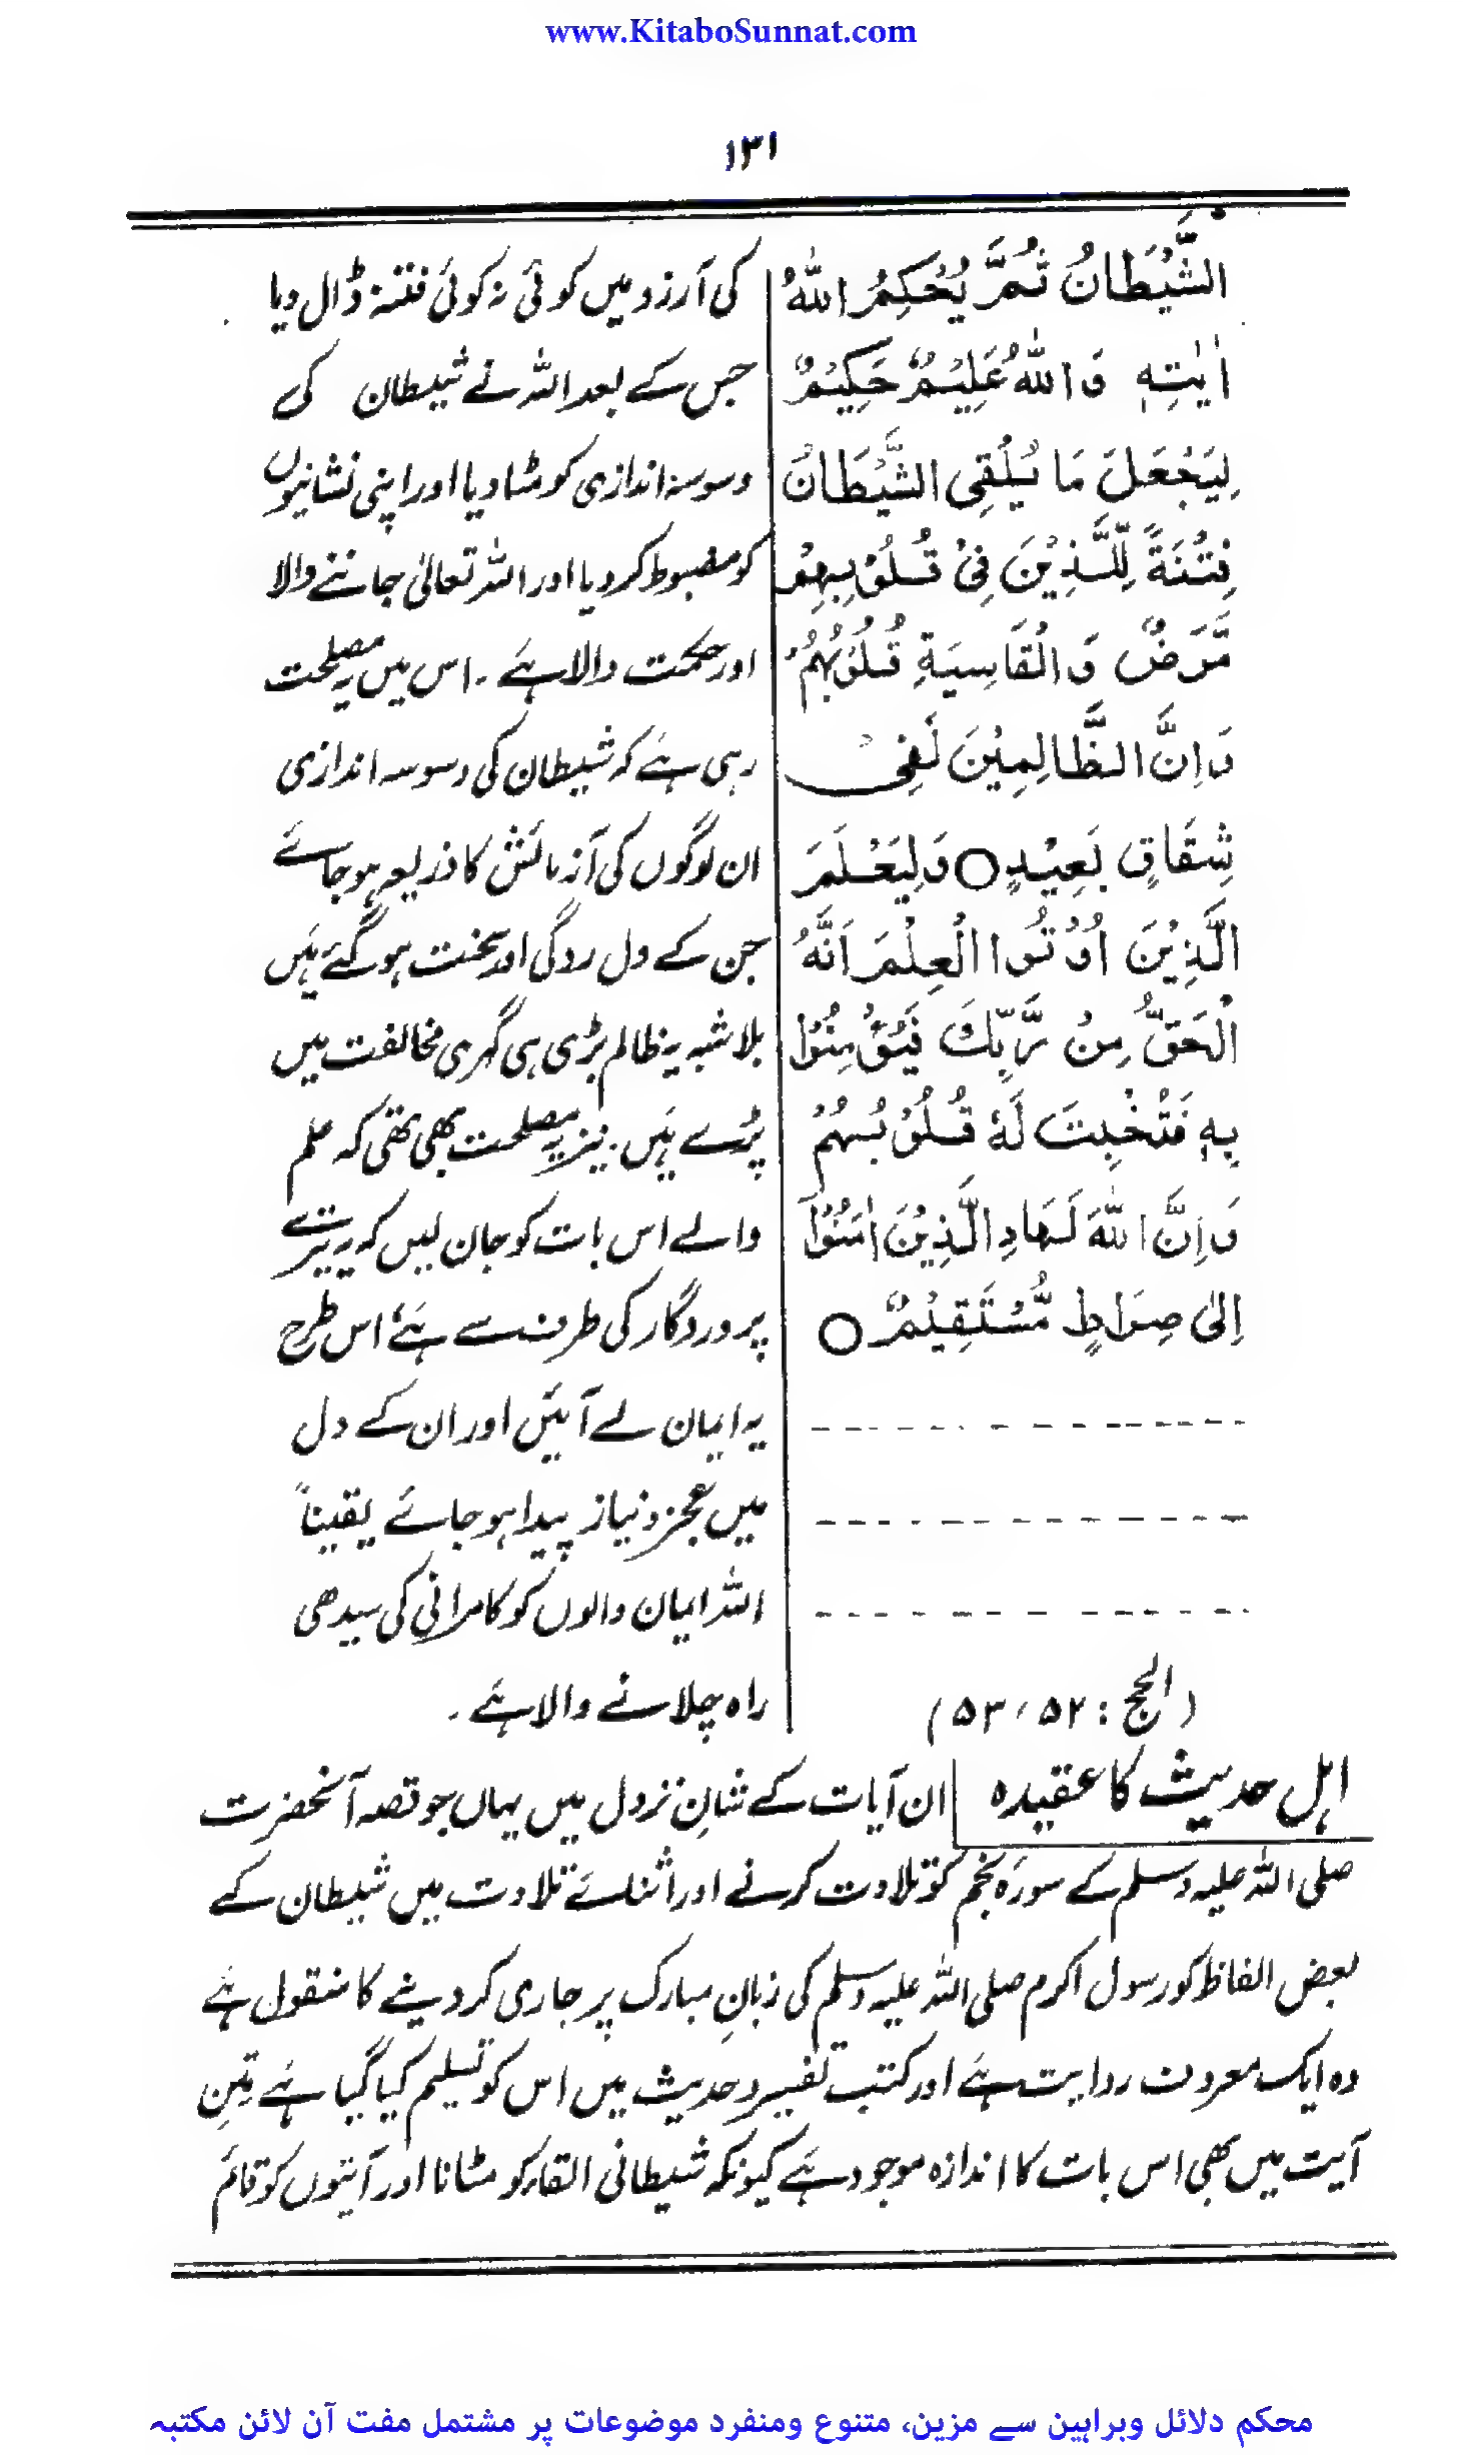 www.KitaboSunnat.com
۱۳۱
الشَّيْطَانُ ثُمَّ يُحْكِمُ اللّٰهُ
اٰيٰتِهٖ وَاللّٰهُ عَلِيْمٌ حَكِيْمٌ
لِيَجْعَلَ مَا يُلْقِى الشَّيْطَانُ
فِتْنَةً لِّلَّذِيْنَ فِىْ قُلُوْبِهِمْ
مَّرَضٌ وَالْقَاسِيَةِ قُلُوْبُهُمْ
وَاِنَّ الظَّالِمِيْنَ لَفِىْ
شِقَاقٍ بَعِيْدٍ○ وَلِيَعْلَمَ
الَّذِيْنَ اُوْتُوا الْعِلْمَ اَنَّهُ
الْحَقُّ مِنْ رَّبِّكَ فَيُؤْمِنُوْا
بِهٖ فَتُخْبِتَ لَهٗ قُلُوْبُهُمْ
وَاِنَّ اللّٰهَ لَهَادِ الَّذِيْنَ اٰمَنُوْا
اِلٰى صِرَاطٍ مُّسْتَقِيْمٍ ○
(الحج : ۵۲ ، ۵۳)
کی آرزو میں کوئی نہ کوئی فتنہ ڈال دیا
جس کے بعد اللہ نے شیطان کی
وسوسہ اندازی کو مٹا دیا اور اپنی نشانیوں
کو مضبوط کر دیا اور اللہ تعالیٰ جاننے والا
اور حکمت والا ہے ۔ اس میں یہ مصلحت
رہی ہے کہ شیطان کی وسوسہ اندازی
ان لوگوں کی آزمائش کا ذریعہ ہو جائے
جن کے دل روگی اور سخت ہو گئے ہیں
بلا شبہ یہ ظالم بڑی ہی گہری مخالفت میں
پڑے ہیں ۔ نیز یہ مصلحت بھی تھی کہ علم
والے اس بات کو جان لیں کہ یہ تیرے
پروردگار کی طرف سے ہے ، اس طرح
یہ ایمان لے آئیں اور ان کے دل
میں عجز و نیاز پیدا ہو جائے یقیناً
اللہ ایمان والوں کو کامرانی کی سیدھی
راہ چلانے والا ہے ۔
اہل حدیث کا عقیدہ ان آیات کے شانِ نزول میں یہاں جو قصہ آنحضرت
صلی اللہ علیہ وسلم کے سورۂ نجم کو تلاوت کرنے اور اثنائے تلاوت میں شیطان کے
بعض الفاظ کو رسول اکرم صلی اللہ علیہ وسلم کی زبانِ مبارک پر جاری کر دینے کا منقول ہے
وہ ایک معروف روایت ہے اور کتب تفسیر و حدیث میں اس کو تسلیم کیا گیا ہے متنِ
آیت میں بھی اس بات کا اندازہ موجود ہے کیونکہ شیطانی القاء کو مٹانا اور آیتوں کو قائم
محکم دلائل وبراہین سے مزین، متنوع ومنفرد موضوعات پر مشتمل مفت آن لائن مکتبہ